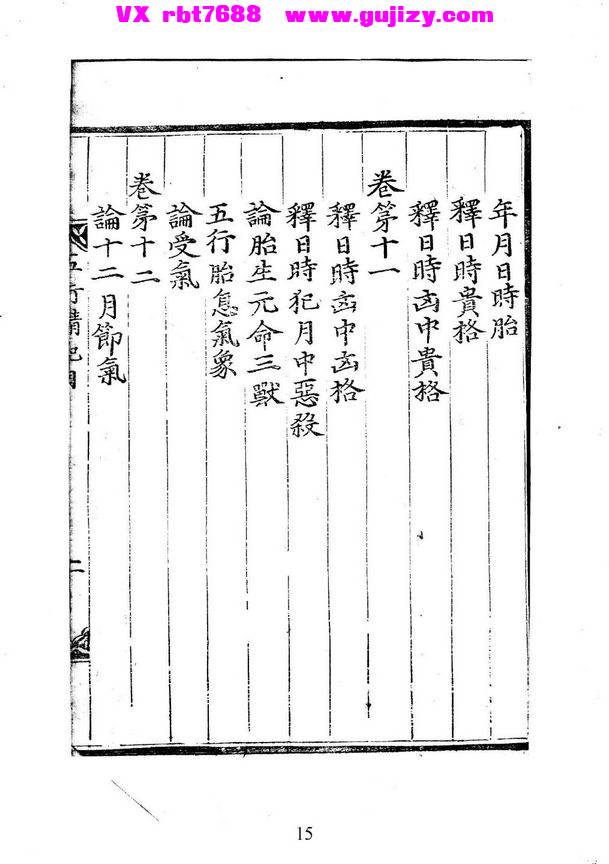 VX rbt7688 www.gujizy.com
年月日時胎
釋日時貴格
釋日時凶中貴格
卷第十一
釋日時凶中凶格
釋日時犯月中惡殺
論胎生元命三獸
五行胎息氣象
論受氣
卷第十二
論十二月節氣
五行精紀
二
15